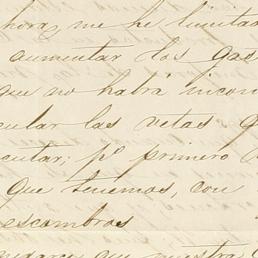 hora, me he limitado
aumentar los gas
que no habrá incon
cutar las vetas q
cutar; pº primero
que tenemos, con
escombros
nuestra